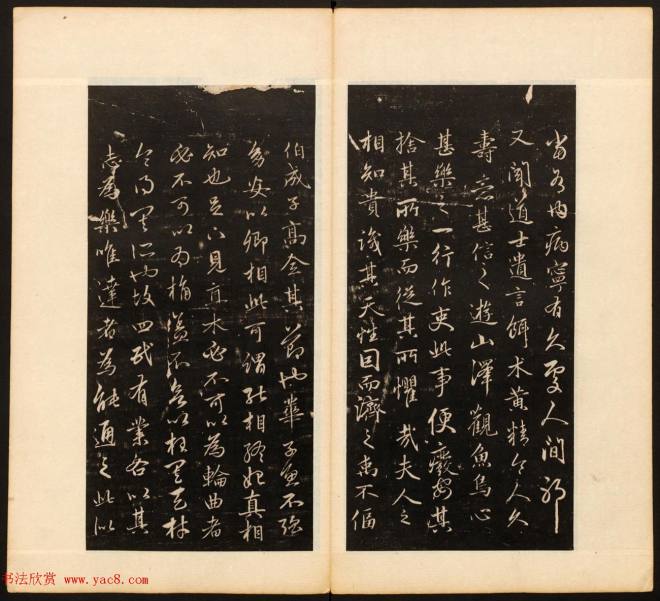 當有內病寧有久處人間邪
又聞道士遺言餌木黃精令人久
壽意甚信之遊山澤觀魚鳥心
甚樂之一行作吏此事便癈安能
捨其所樂而從其所懼哉夫人之
相知貴識其天性因而濟之禹不偪
伯成子高全其節也華子魚不強
幼安以卿相此可謂能相終始真相
知也足下見直木必不可以為輪曲者
必不可以為桷蓋不欲以枉其天材
令得其所也故四民有業各以其
志為樂唯達者為能通之此似
书法欣赏 www.yac8.com